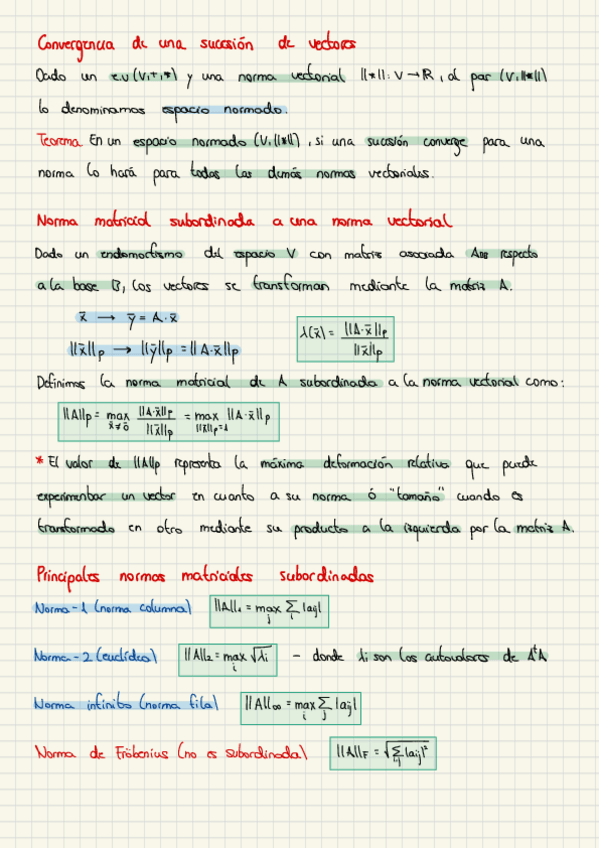 Convergencia de una sucesión de vectores
Dado un e.v (V,+,*) y una norma vectorial ||*||: V → ℝ, al par (V,||*||)
lo denominamos espacio normado.
Teorema En un espacio normado (V,||*||), si una sucesión converge para una
norma lo hará para todas las demás normas vectoriales.
Norma matricial subordinada a una norma vectorial
Dado un endomorfismo del espacio V con matriz asociada A_BB respecto
a la base B, los vectores se transforman mediante la matriz A.
x̄ → ȳ = A·x̄
||x̄||p → ||ȳ||p = ||A·x̄||p
λ(x̄) = ||A·x̄||p / ||x̄||p
Definimos la norma matricial de A subordinada a la norma vectorial como:
||A||p = max x̄≠0̄ ||A·x̄||p / ||x̄||p = max ||x̄||p=1 ||A·x̄||p
* El valor de ||A||p representa la máxima deformación relativa que puede
experimentar un vector en cuanto a su norma ó "tamaño" cuando es
transformado en otro mediante su producto a la izquierda por la matriz A.
Principales normas matriciales subordinadas
Norma-1 (norma columna) ||A||₁ = max j ∑ i |aij|
Norma-2 (euclídea) ||A||₂ = max i √λi - donde λi son los autovalores de AᵗA
Norma infinito (norma fila) ||A||∞ = max i ∑ j |aij|
Norma de Fröbenius (no es subordinada) ||A||F = √∑ i,j |aij|²